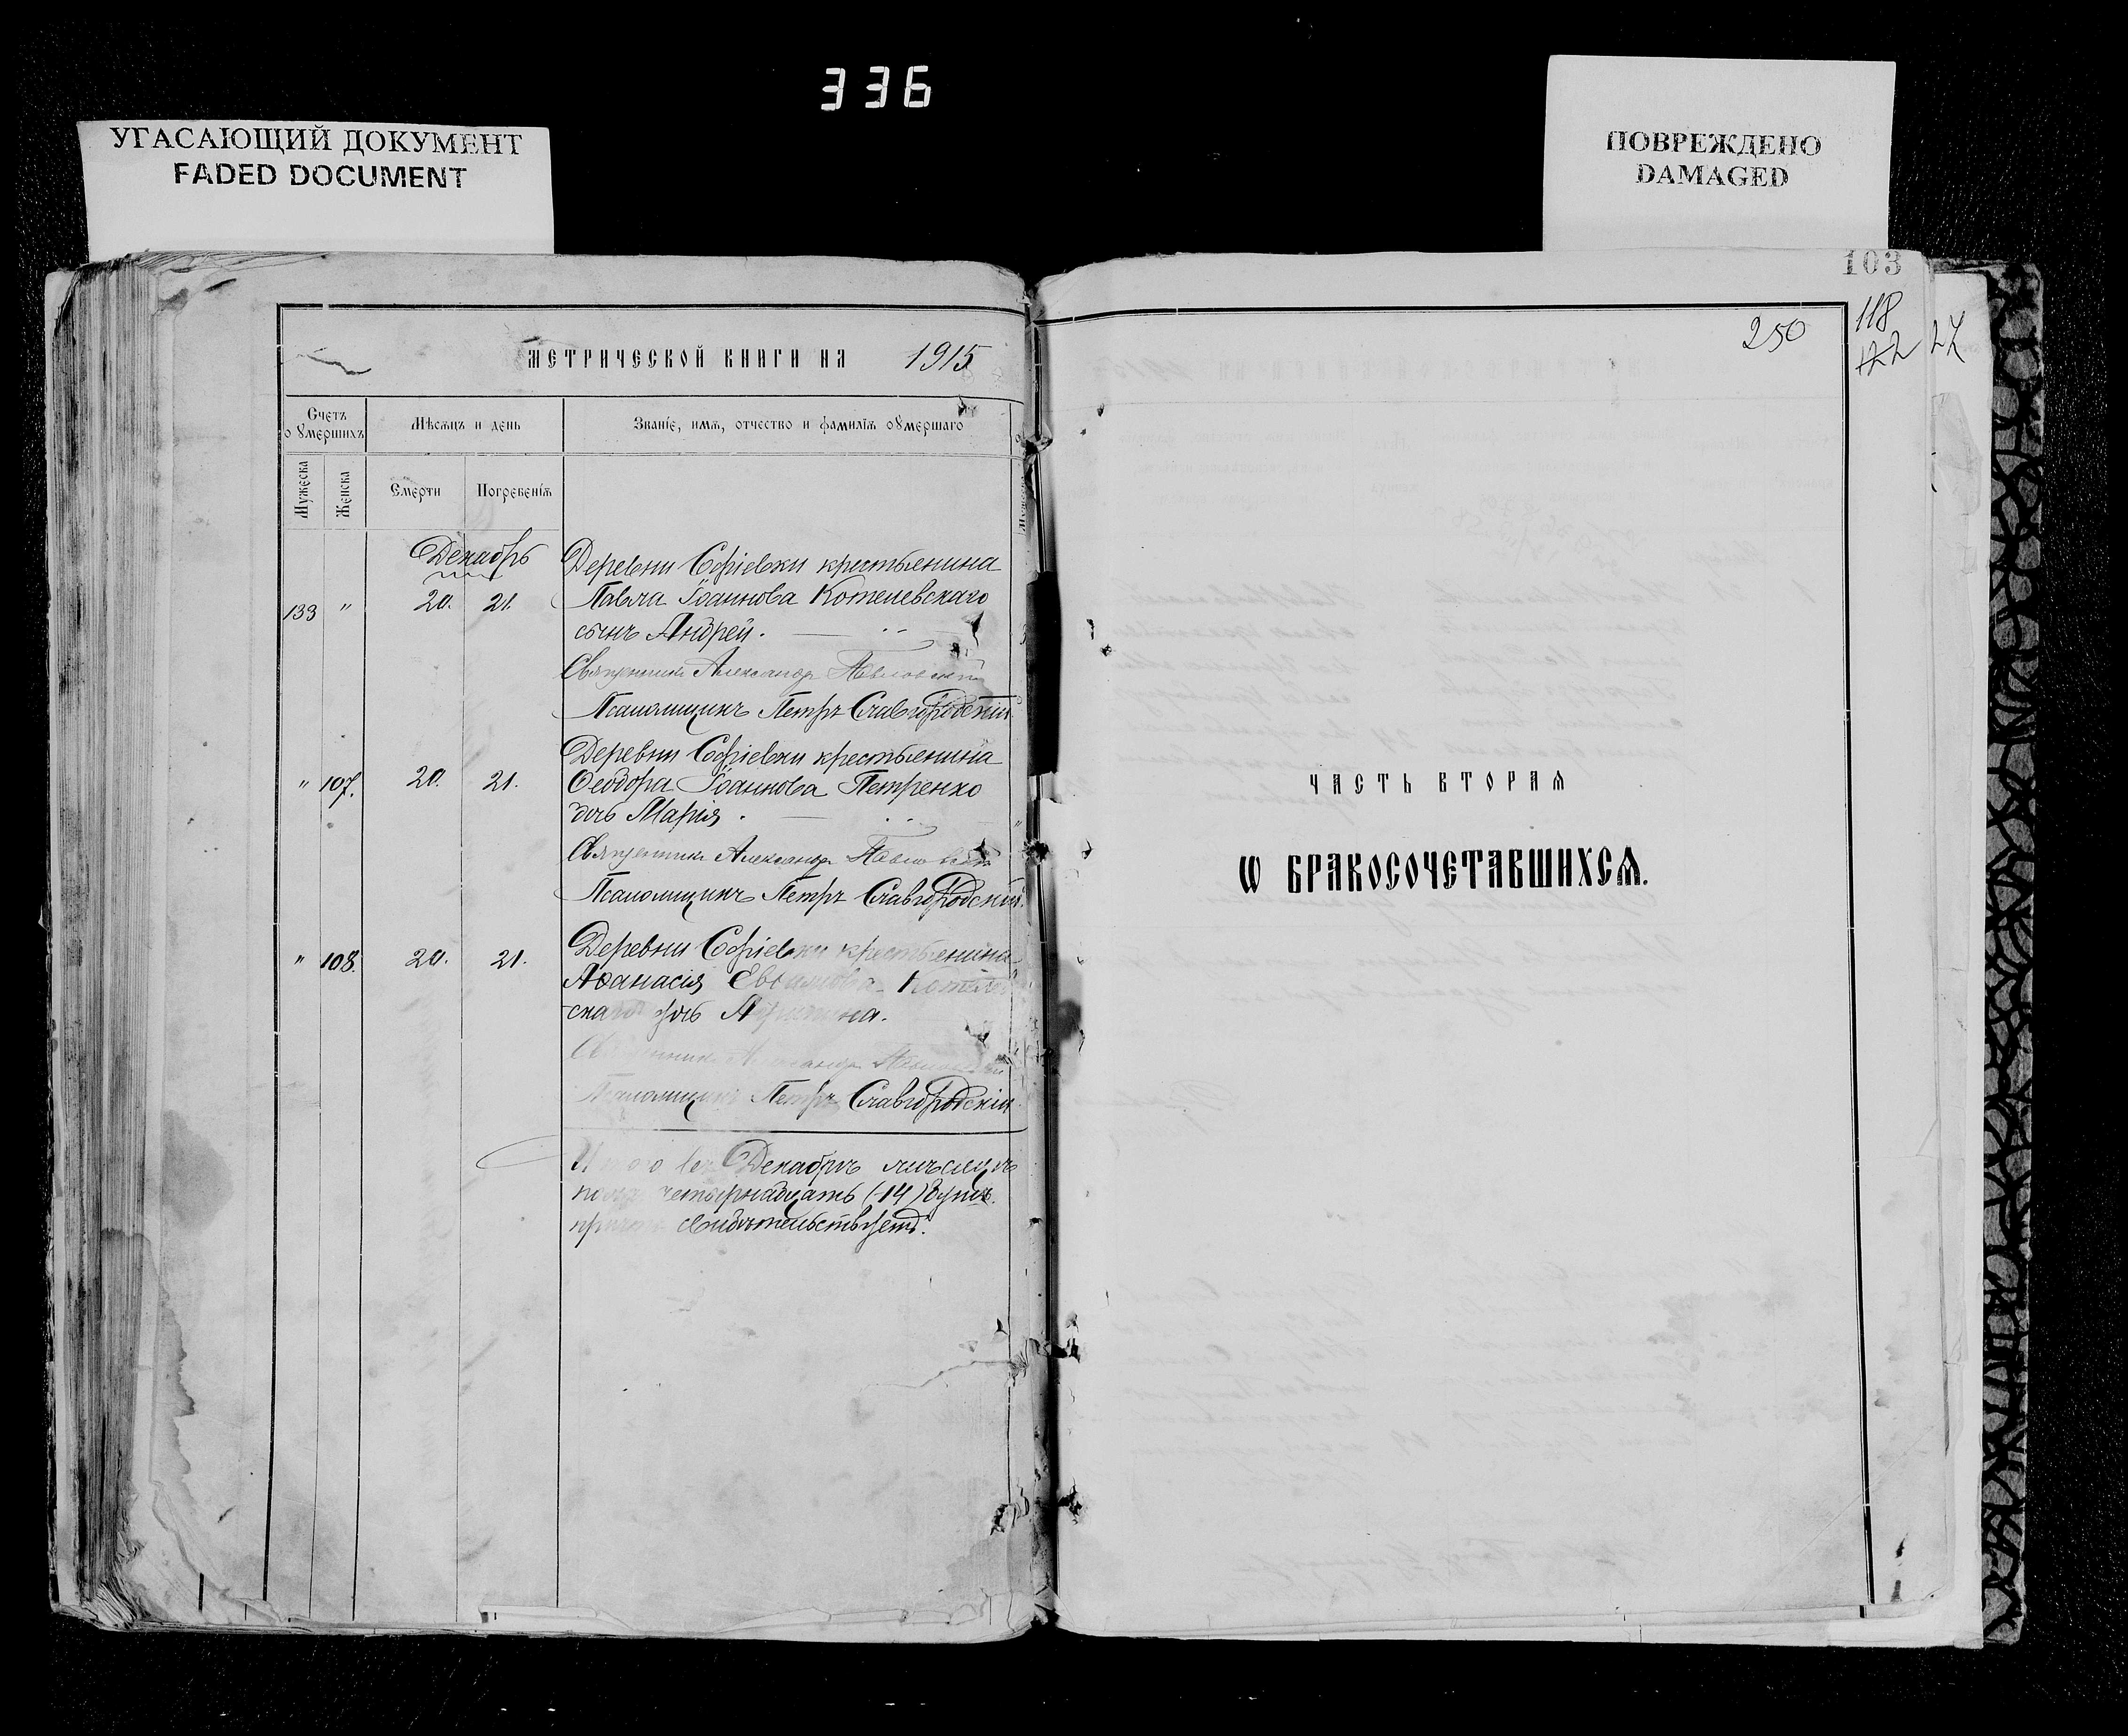 336
УГАСАЮЩИЙ ДОКУМЕНТ
FADED DOCUMENT
ПОВРЕЖДЕНО
DAMAGED
МЕТРИЧЕСКОЙ КНИГИ НА 1915
Счетъ о умершихъ
Мѣсяцъ и день
Званіе, имя, отчество и фамилія оумершаго
Мужеска
Женска
Смерти
Погребенія
Декабрь
Деревни Софіевки крестьянина
133 " 20. 21. Павла Іоаннова Котелевскаго
сынъ Андрей.
Священникъ Александръ Павловскій
Псаломщикъ Петръ Славгородскій
Деревни Софіевки крестьянина
" 107. 20. 21. Ѳеодора Іоаннова Петренко
дочь Марія.
Священникъ Александръ Павловскій
Псаломщикъ Петръ Славгородскій.
" 108. 20. 21. Деревни Софіевки крестьянина
Аѳанасія Котелев
скаго дочь
Священникъ Александръ Павловскій
Псаломщикъ Петръ Славгородскій
Итого въ Декабрѣ мѣсяцѣ
четырнадцать (14) душъ.
причтъ свидѣтельствуетъ.
103
250
118
122
27
ЧАСТЬ ВТОРАЯ
Ѡ БРАКОСОЧЕТАВШИХСѦ.